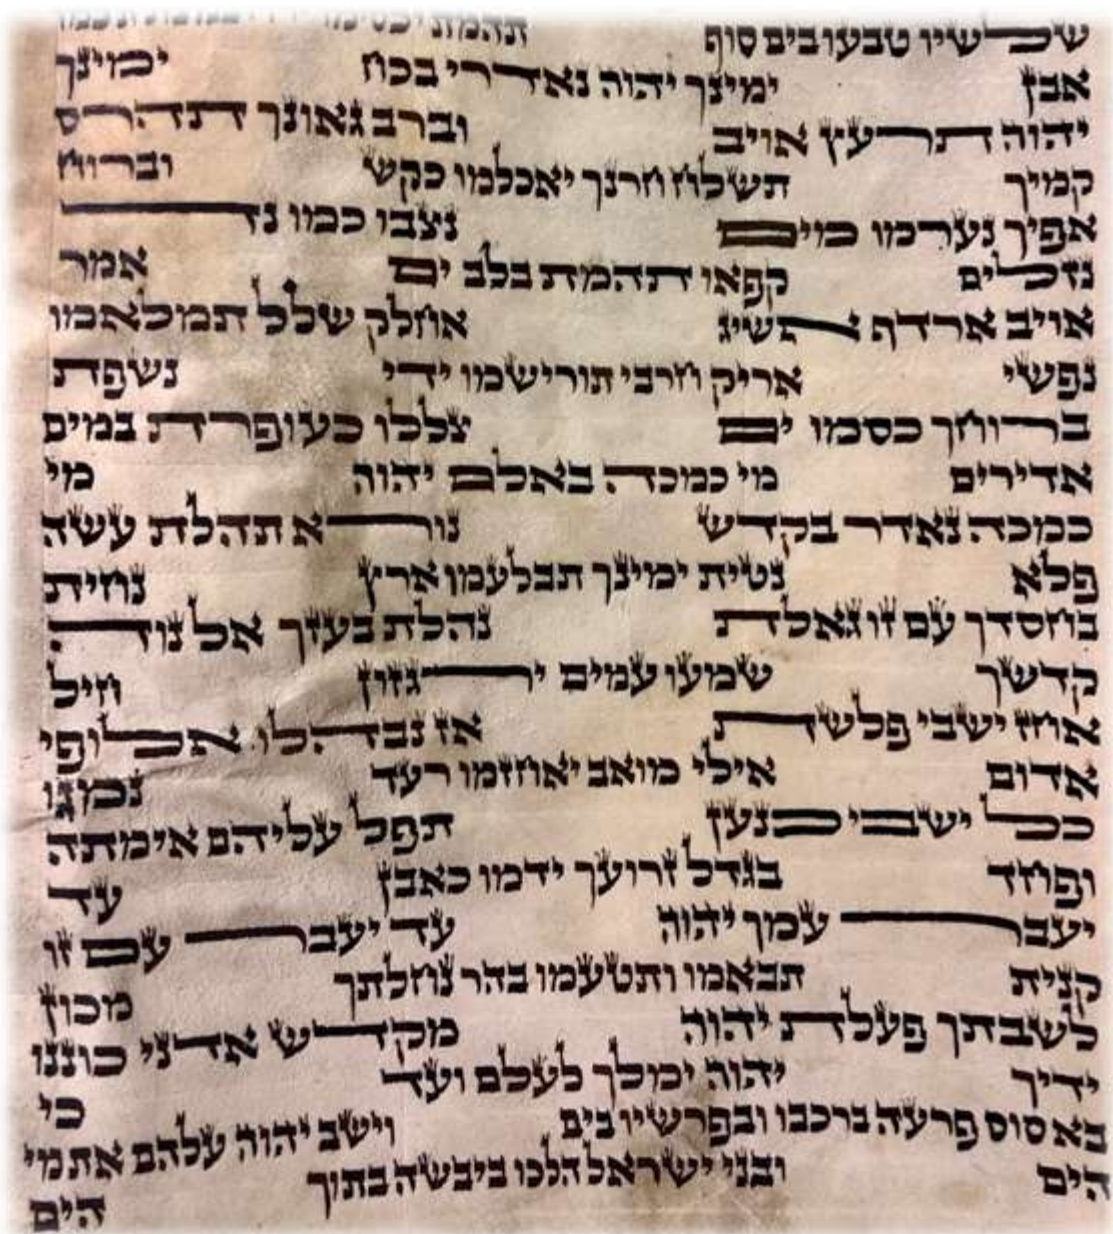 שלשיו טבעו בים סוף תהמת יכסימו ירדו במצולת כמו
אבן ימינך יהוה נאדרי בכח ימינך
יהוה תרעץ אויב וברב גאונך תהרס
קמיך תשלח חרנך יאכלמו כקש וברוח
אפיך נערמו מים נצבו כמו נד
נזלים קפאו תהמת בלב ים אמר
אויב ארדף אשיג אחלק שלל תמלאמו
נפשי אריק חרבי תורישמו ידי נשפת
ברוחך כסמו ים צללו כעופרת במים
אדירים מי כמכה באלם יהוה מי
כמכה נאדר בקדש נורא תהלת עשה
פלא נטית ימינך תבלעמו ארץ נחית
בחסדך עם זו גאלת נהלת בעזך אל נוה
קדשך שמעו עמים ירגזון חיל
אחז ישבי פלשת אז נבהלו אלופי
אדום אילי מואב יאחזמו רעד נמגו
כל ישבי כנען תפל עליהם אימתה
ופחד בגדל זרועך ידמו כאבן עד
יעבר עמך יהוה עד יעבר עם זו
קנית תבאמו ותטעמו בהר נחלתך מכון
לשבתך פעלת יהוה מקדש אדני כוננו
ידיך יהוה ימלך לעלם ועד כי
בא סוס פרעה ברכבו ובפרשיו בים וישב יהוה עלהם את מי
הים ובני ישראל הלכו ביבשה בתוך הים